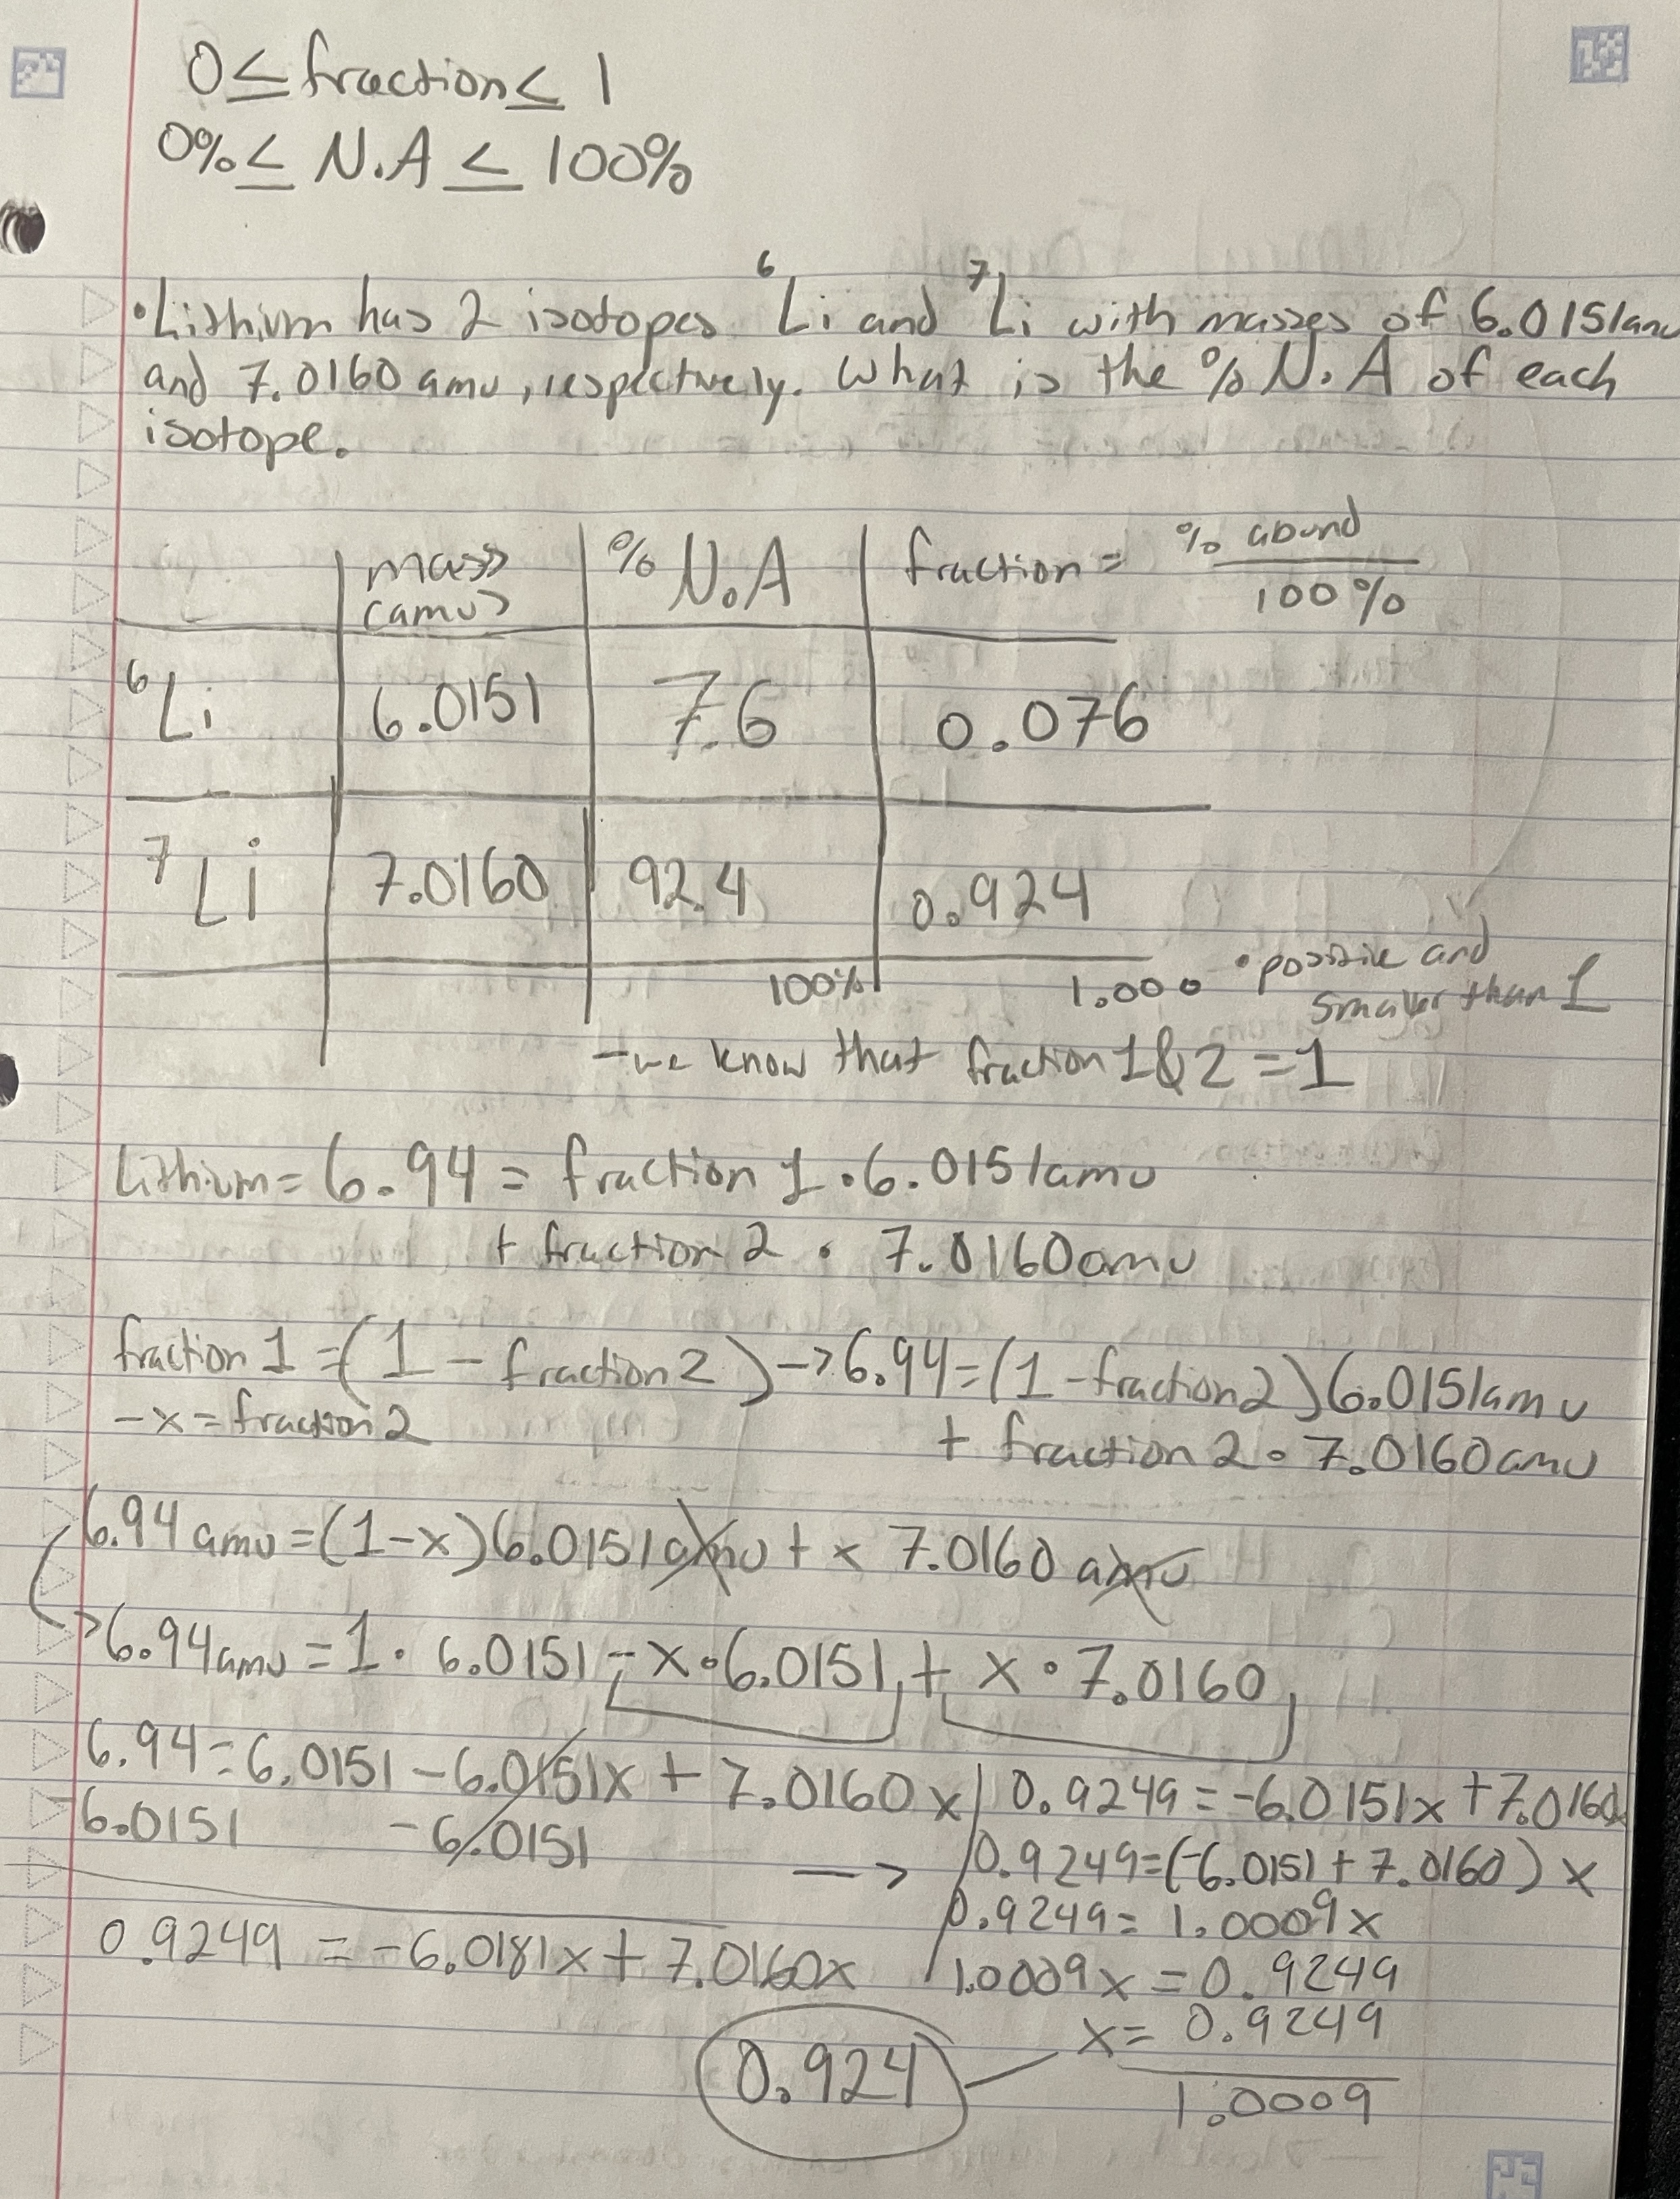 0 ≤ fraction ≤ 1
0% ≤ N.A ≤ 100%
• Lithium has 2 isotopes ⁶Li and ⁷Li with masses of 6.0151amu
and 7.0160 amu, respectively. What is the % N.A of each
isotope.
mass (amu) % N.A fraction = % abund / 100%
⁶Li 6.0151 7.6 0.076
⁷Li 7.0160 92.4 0.924
100% 1.000 • positive and
smaller than 1
- we know that fraction 1 & 2 = 1
Lithium = 6.94 = fraction 1 • 6.0151amu
+ fraction 2 • 7.0160amu
fraction 1 = (1 - fraction 2) -> 6.94 = (1 - fraction 2) 6.0151amu
- x = fraction 2 + fraction 2 • 7.0160amu
6.94 amu = (1-x) 6.0151 amu + x 7.0160 amu
> 6.94amu = 1 • 6.0151 - x • 6.0151 + x • 7.0160
6.94 = 6.0151 - 6.0151x + 7.0160x
-6.0151 -6.0151 ->
0.9249 = -6.0181x + 7.0160x
0.9249 = -6.0151x + 7.0160x
0.9249 = (-6.0151 + 7.0160) x
0.9249 = 1.0009x
1.0009x = 0.9249
x = 0.9249 / 1.0009
0.924